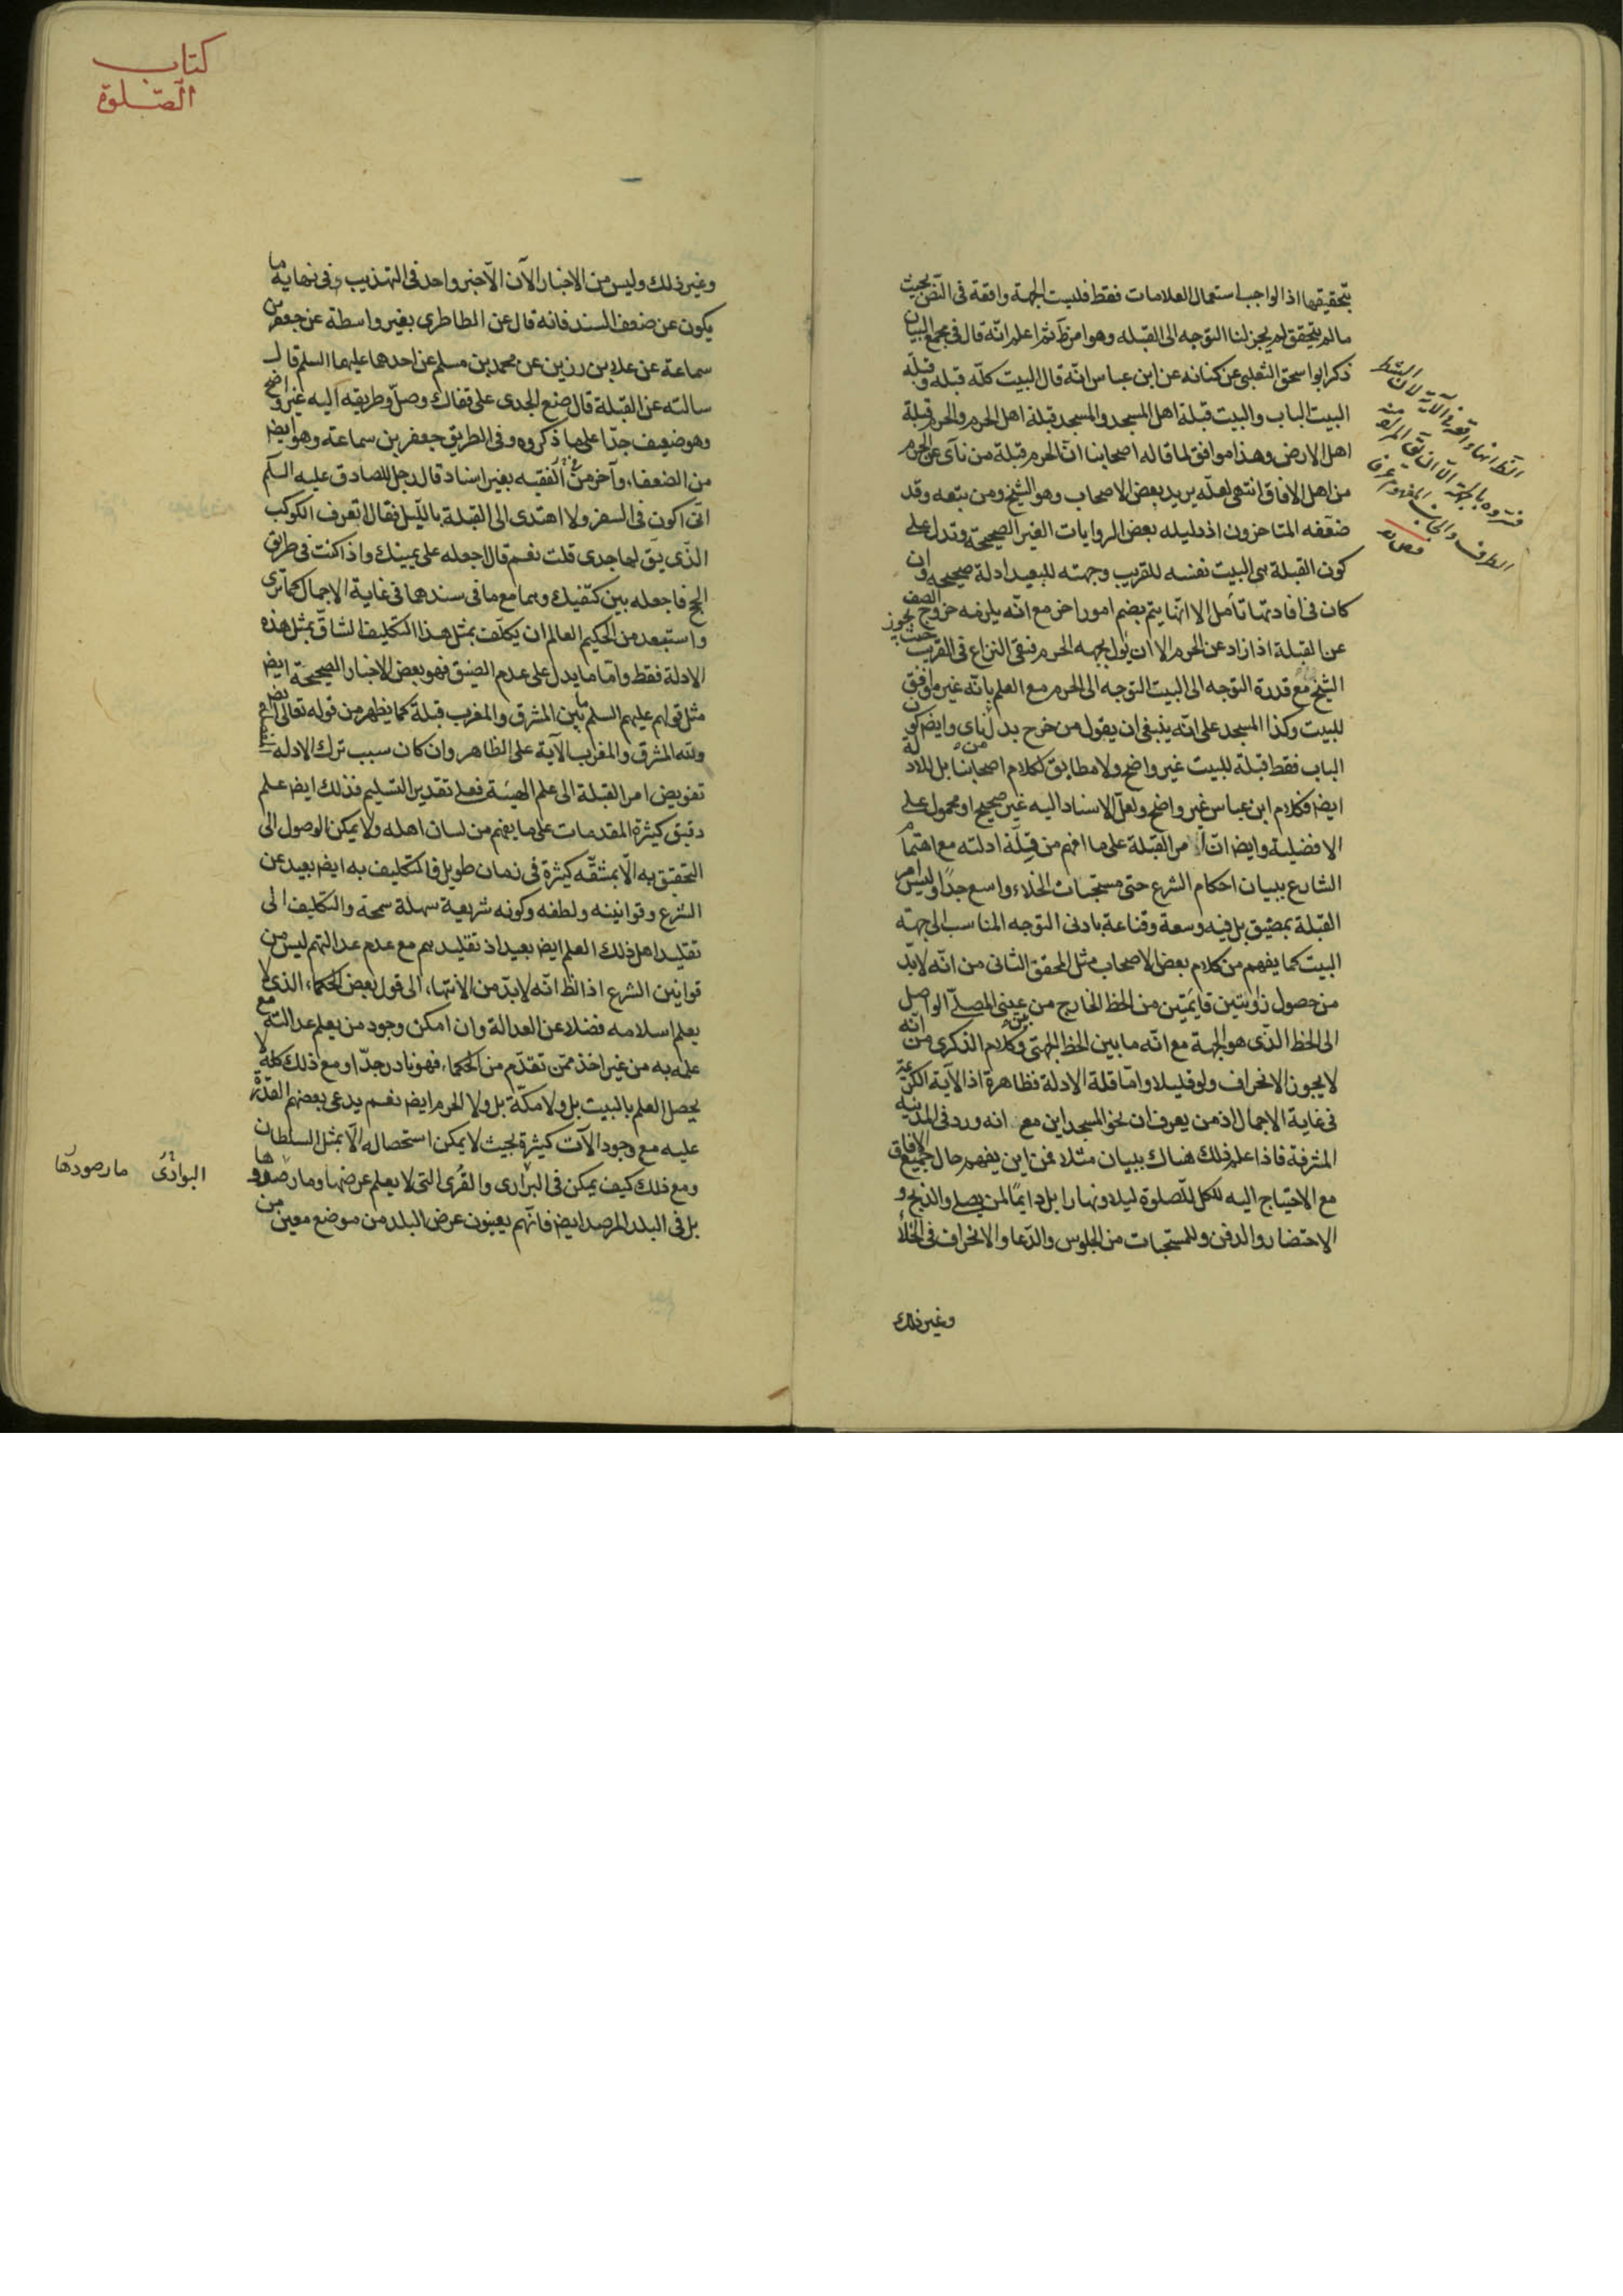 بتحقيقها اذ الواجب استعمال العلامات فقط فليست الجهة واقعة فى النص بحيث
ما لم يتحقق لم يجز لنا التوجه الى القبله وهو امر ظ ثم اعلم انّه قال فى مجمع البيان
ذكر ابو اسحق الثعلبى عن كنانه عن ابن عباس انّه قال البيت كلّه قبله وقبلة
البيت الباب والبيت قبلة اهل المسجد والمسجد قبلة اهل الحرم والحرم قبلة
اهل الارض وهذا موافق لما قاله اصحابنا انّ الحرم قبلة من نآى عن الحرم
من اهل الافاق انتهى لعلّه يريد بعض الاصحاب وهو الشيخ ومن تبعه وقد
ضعّفه المتاخرون اذ دليله بعض الروايات الغير الصحيحة وتدل على
كون القبلة هى البيت نفسه للقريب وجهته للبعيد ادلة صحيحه وان
كان فى افادتها تأمل الا انّها يتم بضم امور اخر مع انّه يلزمه خروج الصف
عن القبلة اذا زاد عن الحرم الا ان يؤل بجهه الحرم فبقى النزاع فى القريب حيث يجوز
الشيخ مع قدرة التوجه الى البيت التوجه الى الحرم مع العلم بانّه غير موافق
للبيت وكذا المسجد على انّه ينبغى ان يقول من خرج بدل ناى وايض كون
الباب فقط قبلة للبيت غير واضح ولا مطابق لكلام اصحابنا بل للادلة
ايضا فكلام ابن عباس غير واضح ولعلّ الاسناد اليه غير صحيح او محمول على
الافضلية وايض انّ امر القبلة على ما افهم من قلّة ادلته مع اهتمام
الشارع ببيان احكام الشرع حتى مستحبات الخلاء واسع جدًا وليس امر
القبلة بمضيق بل فيه وسعة وقناعة بادنى التوجه المناسب الى جهة
البيت كما يفهم من كلام بعض الاصحاب مثل المحقق الثانى من انّه لابدّ
من حصول زاويتين قايمتين من الخط الخارج من عينى المصلّى الواصل
الى الخط الذّى هو الجهة مع انّه ما بين الخط الجهتى وكلام الذكرى من انّه
لا يجوز الانحراف ولو قليلا وامّا قلة الادلة فظاهرة اذ الآية الكريمة
فى غاية الاجمال اذ من يعرف ان نحو المسجد اين مع انه ورد فى المدينه
المشرفة فاذا علم ذلك هناك ببيان مثلا فمن اين يفهم حال جميع الافاق
مع الاحتياج اليه للكل للصّلوة ليلا ونهارا بل دايمًا لمن يصلى والذبح و
الاحتضار والدفن وللمستحبات من الجلوس والدّعا والانحراف فى الخلأ
وغير ذلك
كتاب
الصّلوة
وغير ذلك وليس من الاخبار الآن الّا خبر واحد فى التهذيب وفى نهاية ما
يكون عن ضعف السند فانه قال عن الطاطرى بغير واسطة عن جعفر بن
سماعة عن علا بن رزين عن محمد بن مسلم عن احدهما عليهما السلم قال
سالته عن القبلة قال ضع الجدى على قفاك وصلّ وطريقه اليه غير واضح
وهو ضعيف جدّا على ما ذكروه وفى الطريق جعفر بن سماعة وهو ايض
من الضعفاء وآخر من الفقيه بغير اسناد قال رجل للصادق عليه السلم
انّى اكون فى السفر ولا اهتدى الى القبلة بالليل فقال اتعرف الكوكب
الذّى يق لها جدى قلت نعم قال اجعله على يمينك واذا كنت فى طريق
الحج فاجعله بين كتفيك وهما مع ما فى سندهما فى غاية الاجمال كما ترى
واستبعد من الحكيم العالم ان يكلّف بمثل هذا التكليف الشاقّ بمثل هذه
الادلة فقط وامّا ما يدل على عدم الضيق فهو بعض الاخبار الصحيحة ايض
مثل قولهم عليهم السلم ما بين المشرق والمغرب قبلة كما يظهر من قوله تعالى ايض
ولله المشرق والمغرب الآية على الظاهر وان كان سبب ترك الادله
تفويض امر القبلة الى علم الهيئة فعلى تقدير التسليم فذلك ايض علم
دقيق كثيرة المقدمات على ما يفهم من لسان اهله ولا يمكن الوصول الى
التحقيق به الّا بمشقّه كثيرة فى زمان طويل فالتكليف به ايض بعيد عن
الشرع وقوانينه ولطفه وكونه شريعية سهلة سمحة والتكليف الى
تقليد اهل ذلك العلم ايض بعيد اذ تقليدهم مع عدم عدالتهم ليس من
قوانين الشرع اذ الظ انّه لابدّ من الانتهاء الى قول بعض الحكماء الذى لا
يعلم اسلامه فضلا عن العدالة وان امكن وجود من يعلم عدالته مع
علمه به من غير اخذ ممّن تقدّم من الحكماء فهو نادر جدّا ومع ذلك كله لا
يحصل العلم بالبيت بل ولا مكّة بل ولا الحرم ايض نعم يدعى بعضهم القدرة
عليه مع وجود الآت كثيرة بحيث لا يمكن استحصاله الّا بمثل السلطان
ومع ذلك كيف يمكن فى البرارى والقرى التى لا يعلم عرضها وما رصدوها
بل فى البلد المرصد ايض فانهم يعينون عرض البلد من موضع معين من
البوادى ما رصودها